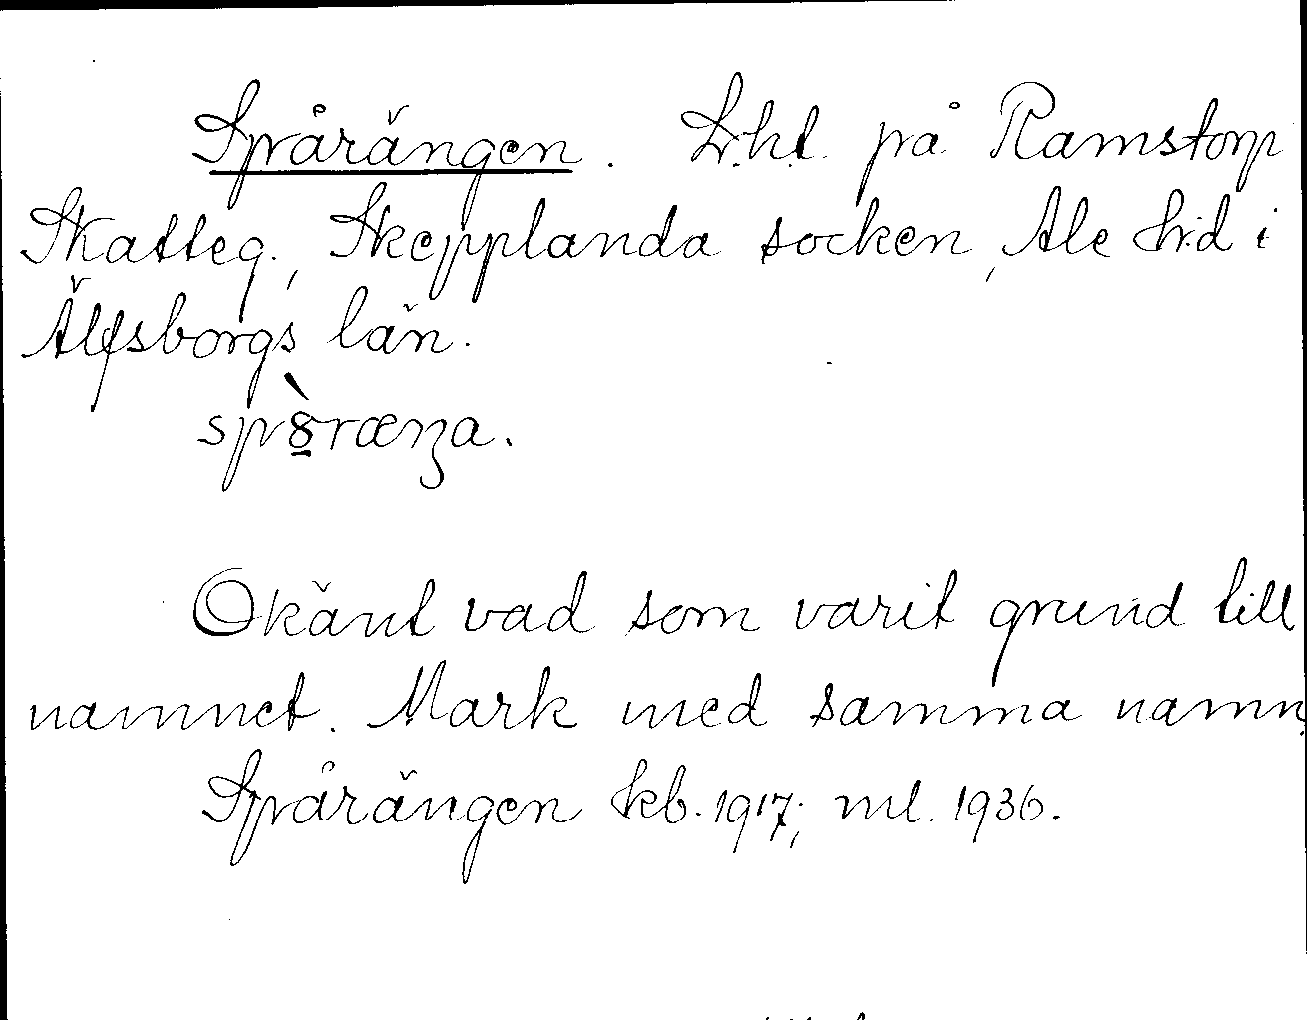 Spårängen. Lr.ht. på Ramstorp
Skatteg., Skepplanda socken, Ale h:d i
Älfsborgs län.
Okänt vad som varit grund till
namnet. Mark med samma namn.
Spårängen kb. 1917; ml. 1936.